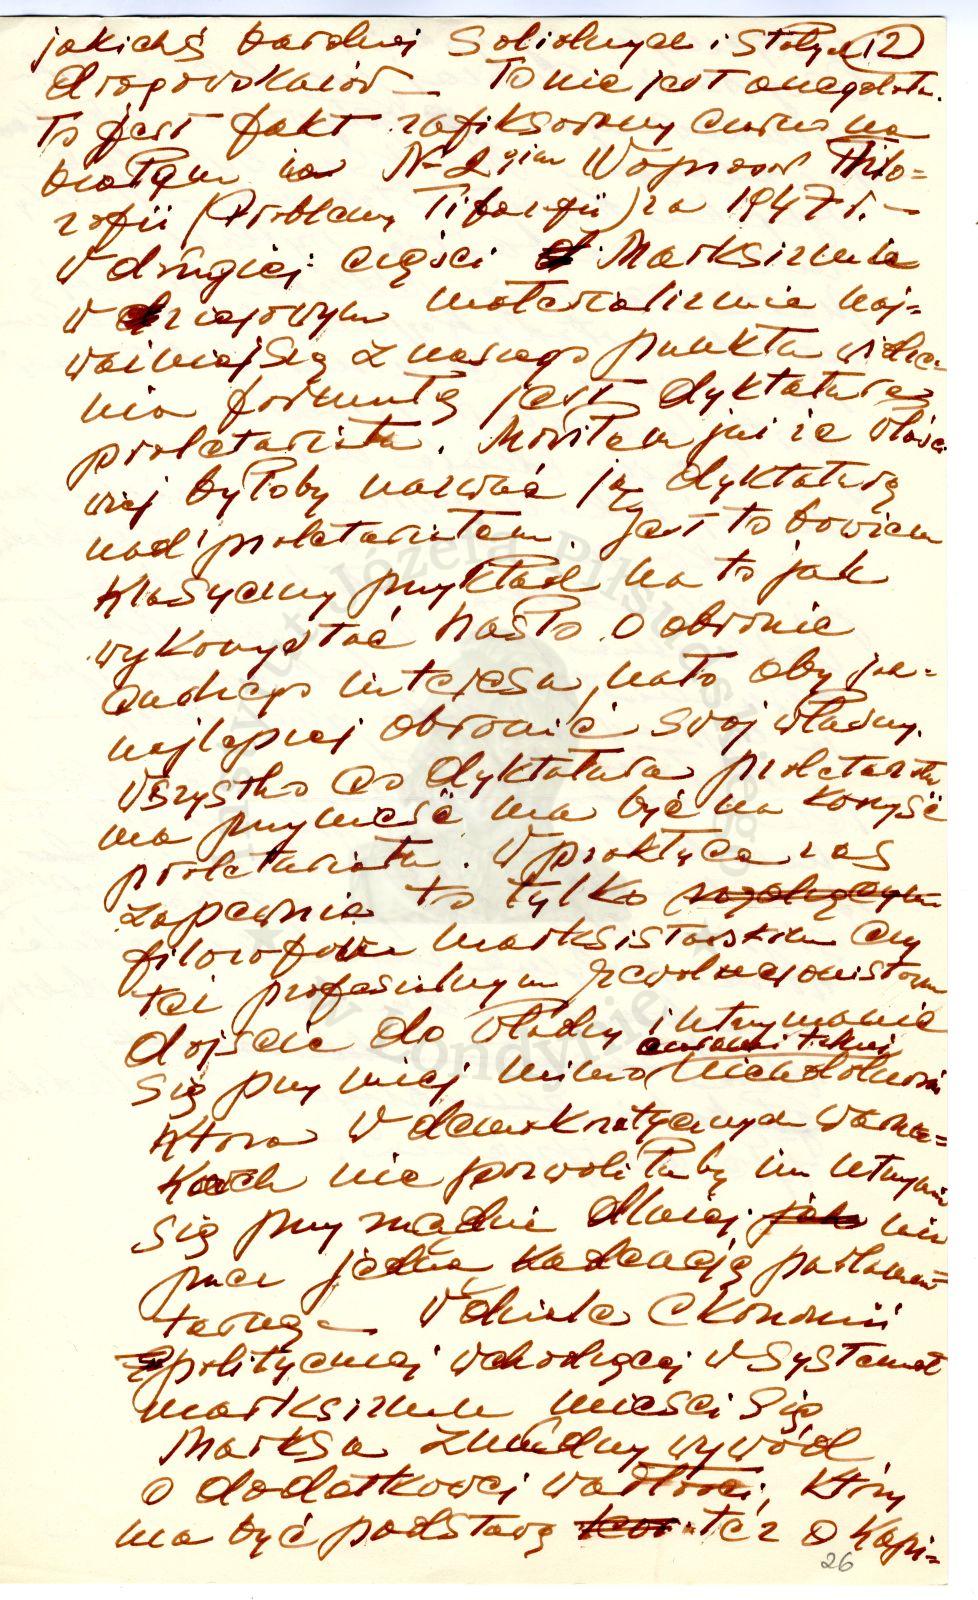 jakichś bardziej solidnych i stałych 12
drogowskazów — To nie jest anegdota.
To jest fakt zafiksowany czarno na
białym na N-2gim Woprosow Fiło=
zofii (Problemy Fiłozofii) za 1947 r. —
W drugiej części Marksizmie
w dziejowym materializmie naj=
ważniejszą z naszego punktu widze
nia formułą jest dyktatura
proletariatu. Mówiłem już że właści
wiej byłoby nazwać ją dyktaturą
nad proletariatem. Jest to bowiem
klasyczny przykład na to jak
wykorzystać hasło o obronie
cudzego interesu, na to aby ja=
najlepiej obronić swój własny.
Wszystko co dyktatura proletariatu
ma przynieść ma być na korzyść
proletariatu. W praktyce zaś
zapewnia to tylko
filozofom marksistowskim czy
też profesjalnym rewolucjonistom
dojście do władzy i utrzymanie
się przy niej mimo nieudolności
która w demokratycznych warun=
kach nie pozwoliłaby im utrzymać
się przy rządzie dłużej jak niż
przez jedną kadencję parlamen=
tarną — W dziale ekonomii
politycznej wchodzącej w system
marksizmu mieści się
Marksa żmudny wywód
o dodatkowej wartości, który
ma być podstawą tez o kapi=
26
Instytut Józefa Piłsudskiego
w Londynie